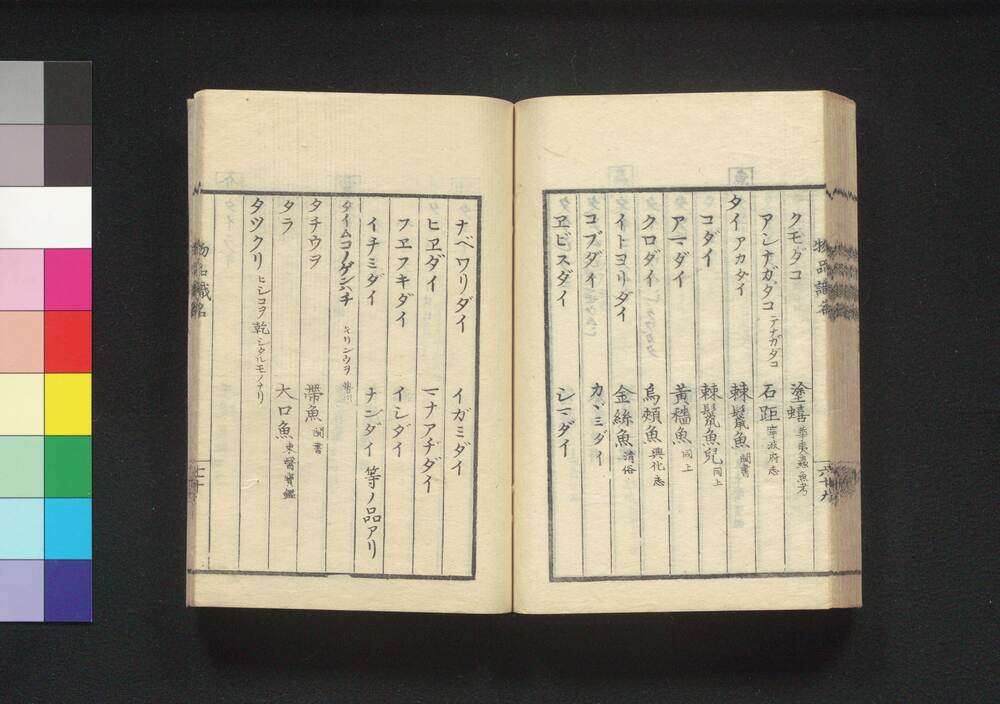 クモダコ 塗蟢 華夷蟲魚考
アシナガダコ テナガダコ 石距 寧波府志
タイ アカダイ 棘鬣魚 閩書
コダイ 棘鬣魚兒 同上
アマダイ 黃穡魚 同上
クロダイ 烏頰魚 興化志
イトヨリダイ 金絲魚 清俗
コブダイ カヾミダイ
ヱビスダイ シマダイ
六十九
ナベワリダイ イガミダイ
ヒヱダイ マナアチダイ
フヱフキダイ イシダイ
イチミダイ ナンダイ 等ノ品アリ
タイムコノゲンハチ キリンウヲ
タチウヲ 帶魚 閩書
タラ 大口魚 東醫寶鑑
タツクリ ヒシコヲ乾シタルモノナリ
物品識名
七十